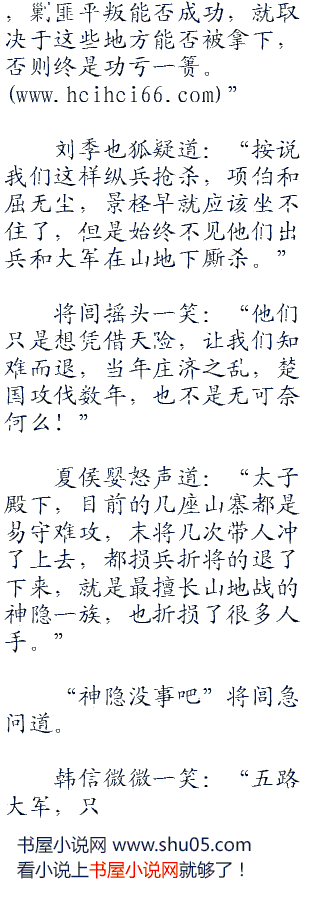 ，剿匪平叛能否成功，就取
决于这些地方能否被拿下，
否则终是功亏一篑。
(www.hcihci66.com)”
刘季也狐疑道：“按说
我们这样纵兵抢杀，项伯和
屈无尘，景柽早就应该坐不
住了，但是始终不见他们出
兵和大军在山地下厮杀。”
将闾摇头一笑：“他们
只是想凭借天险，让我们知
难而退，当年庄济之乱，楚
国攻伐数年，也不是无可奈
何么！”
夏侯婴怒声道：“太子
殿下，目前的几座山寨都是
易守难攻，末将几次带人冲
了上去，都损兵折将的退了
下来，就是最擅长山地战的
神隐一族，也折损了很多人
手。”
“神隐没事吧”将闾急
问道。
韩信微微一笑：“五路
大军，只
书屋小说网 www.shu05.com
看小说上书屋小说网就够了！